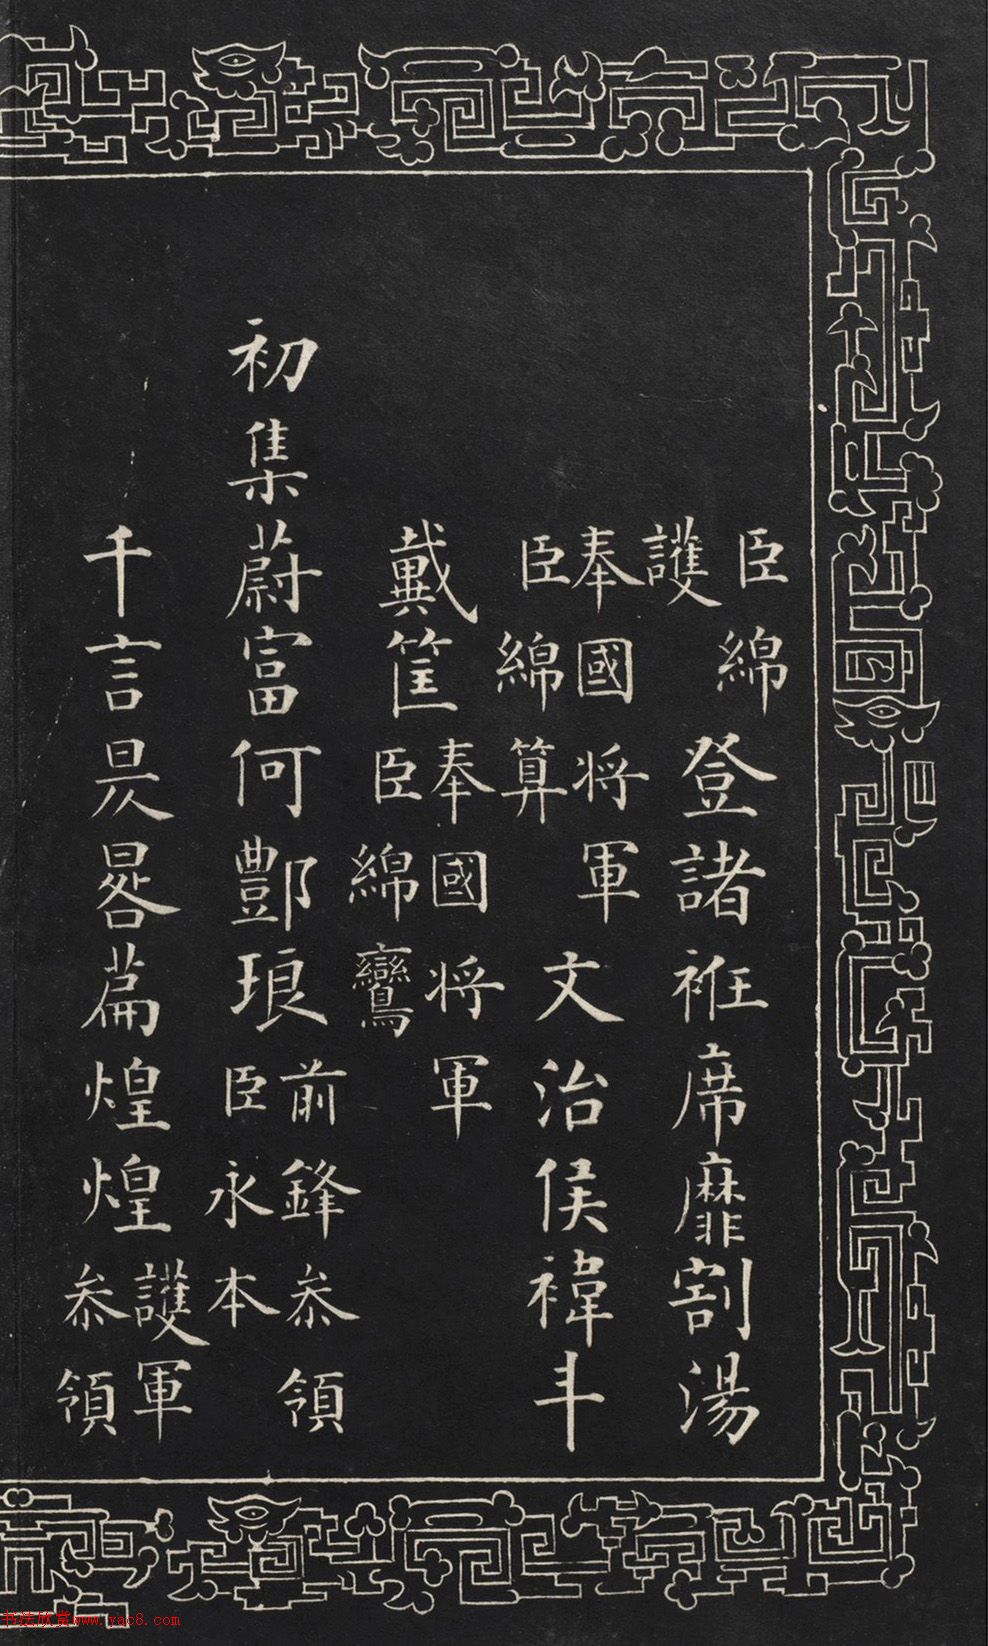 臣綿護登諸袵席靡割湯
奉國将軍臣綿算文治侯禕斗
戴筐奉國将軍臣綿鸞
初集蔚富何酆琅前鋒叅領臣永本
千言昃晷篇煌煌護軍叅領
书法欣赏www.yac8.com